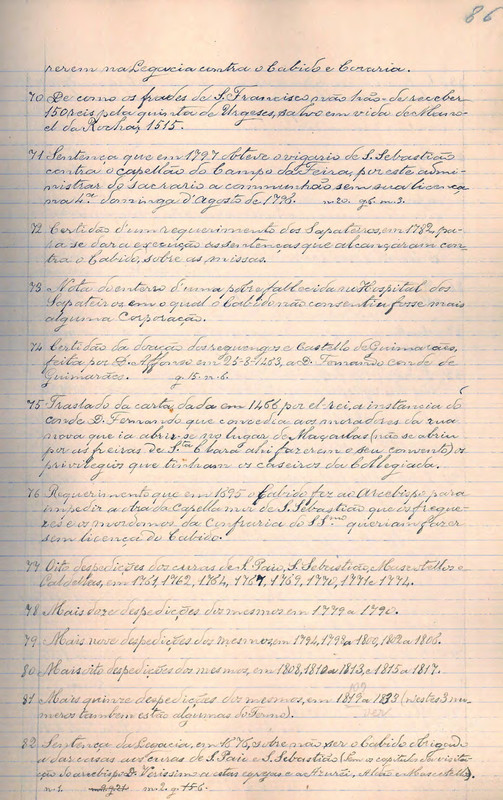 86
rerem na Legacia contra o Cabido e Coraria.
70 De como os frades de S. Francisco não hão-de receber
150 reis pela quinta de Urgeses, salvo em vida de Mano-
el da Rocha, 1515.
71 Sentença que em 1797 obteve o vigario de S. Sebastião
contra o capellão do Campo da Feira, por este admi-
nistrar do sacrario a communhão sem sua licença
na 4ª dominga d'Agosto de 1796.
72 Certidão d'um requerimento dos Sapateiros, em 1782 pa-
ra se dar a execução as sentenças que alcançaram con-
tra o Cabido, sobre as missas.
73 Nota do enterro d'uma pobre fallecida no Hospital dos
Sapateiros em o qual o Cabido não consentiu fosse mais
alguma corporação.
74 Certidão da doação dos reguengos e Castello de Guimarães,
feita por D. Affonso em 25-8-1463, a D. Fernando conde de
Guimarães. g. 15. n. 6.
75 Traslado da carta, dada em 1466 por el-rei, a instancia do
conde D. Fernando que concedia aos moradores da rua
nova que ia abrir-se no lugar de Maçoulas (não se abriu
por as freiras de Sta Clara ahi fazerem o seu convento) os
privilegios que tinham os caseiros da Collegiada.
76 Requerimento que em 1695 o Cabido fez ao Arcebispo para
impedir a obra da capella mor de S. Sebastião que os fregue-
zes e os mordomos da Confraria do SSmo queriam fazer
sem licença do Cabido.
77 Oito despedições dos curas de S. Paio, S. Sebastião, Mascotellos e
Caldellas, em 1761, 1762, 1764, 1767, 1769, 1770, 1771 e 1774.
78 Mais doze despedições dos mesmos em 1779 a 1790.
79 Mais nove despedições dos mesmos, em 1794, 1798 a 1800, 1802 a 1806.
80 Mais oito despedições dos mesmos, em 1808, 1810 a 1813, e 1815 a 1817.
81 Mais quinze despedições dos mesmos, em 1819 a 1833 (nestes 3 nu-
meros tambem estão algumas do Forno).
82 Sentença da Legacia, em 1676, sobre não ser o Cabido obrigado
a dar casas aos curas de S. Paio e S. Sebastião (Tem os capitulos da visita-
ção do arcebispo D. Verissimo a estas egrejas e a Azurei, Mião e Mascotellos).